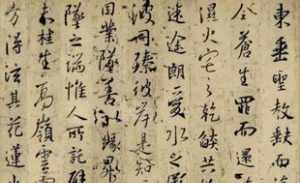 東垂聖教缺而
全蒼生罪而還
濕火宅之乾焰共
迷途朗愛水之昏
波同臻彼岸是知
因業墜善以緣昇
墜之端惟人所託譬
夫桂生高嶺雲
方得泫其花蓮